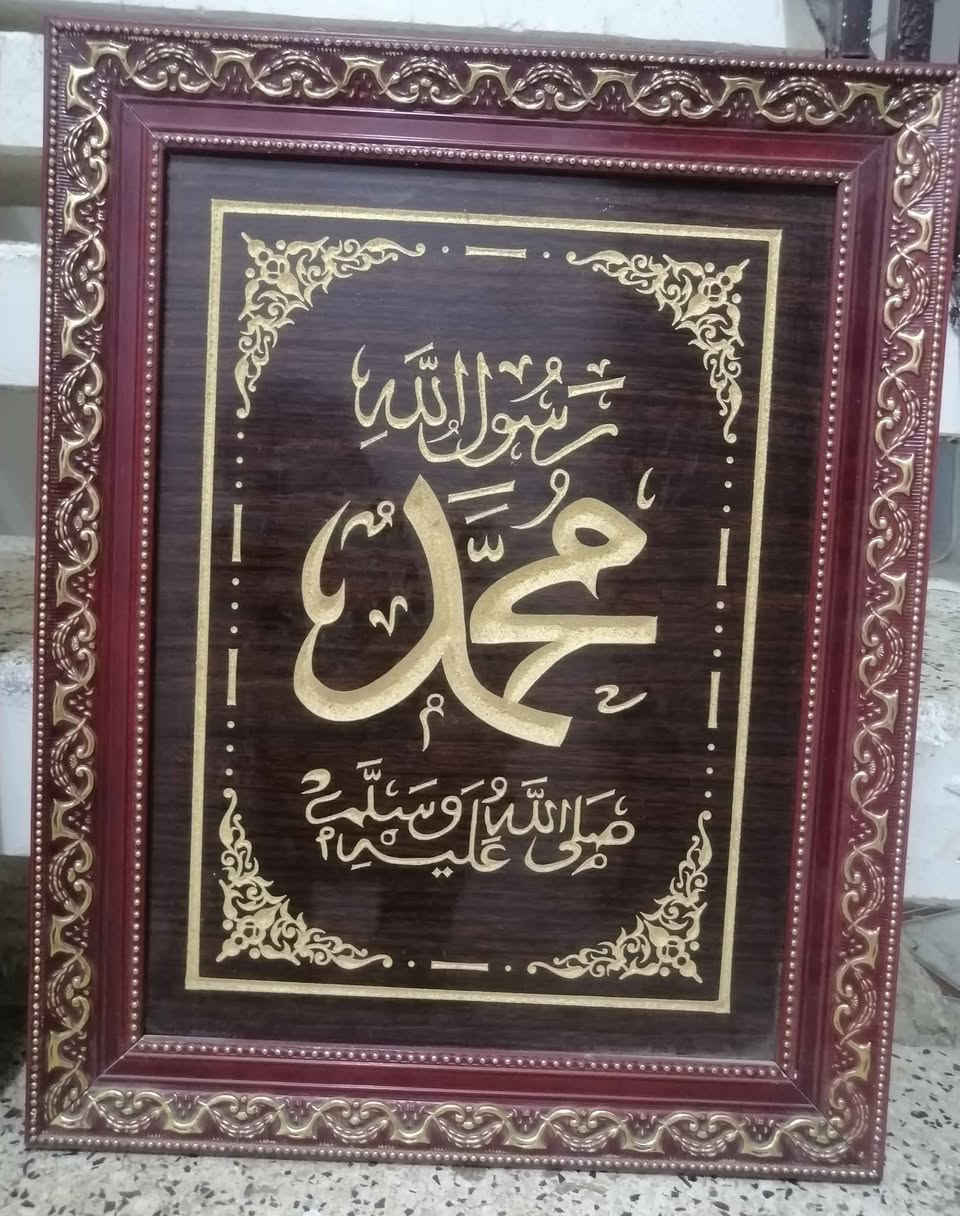 رَسُولُ اللَّهِ
مُحَمَّدٌ
صَلَى اللَّهُ عَلَيْهِ وَسَلَّمَ